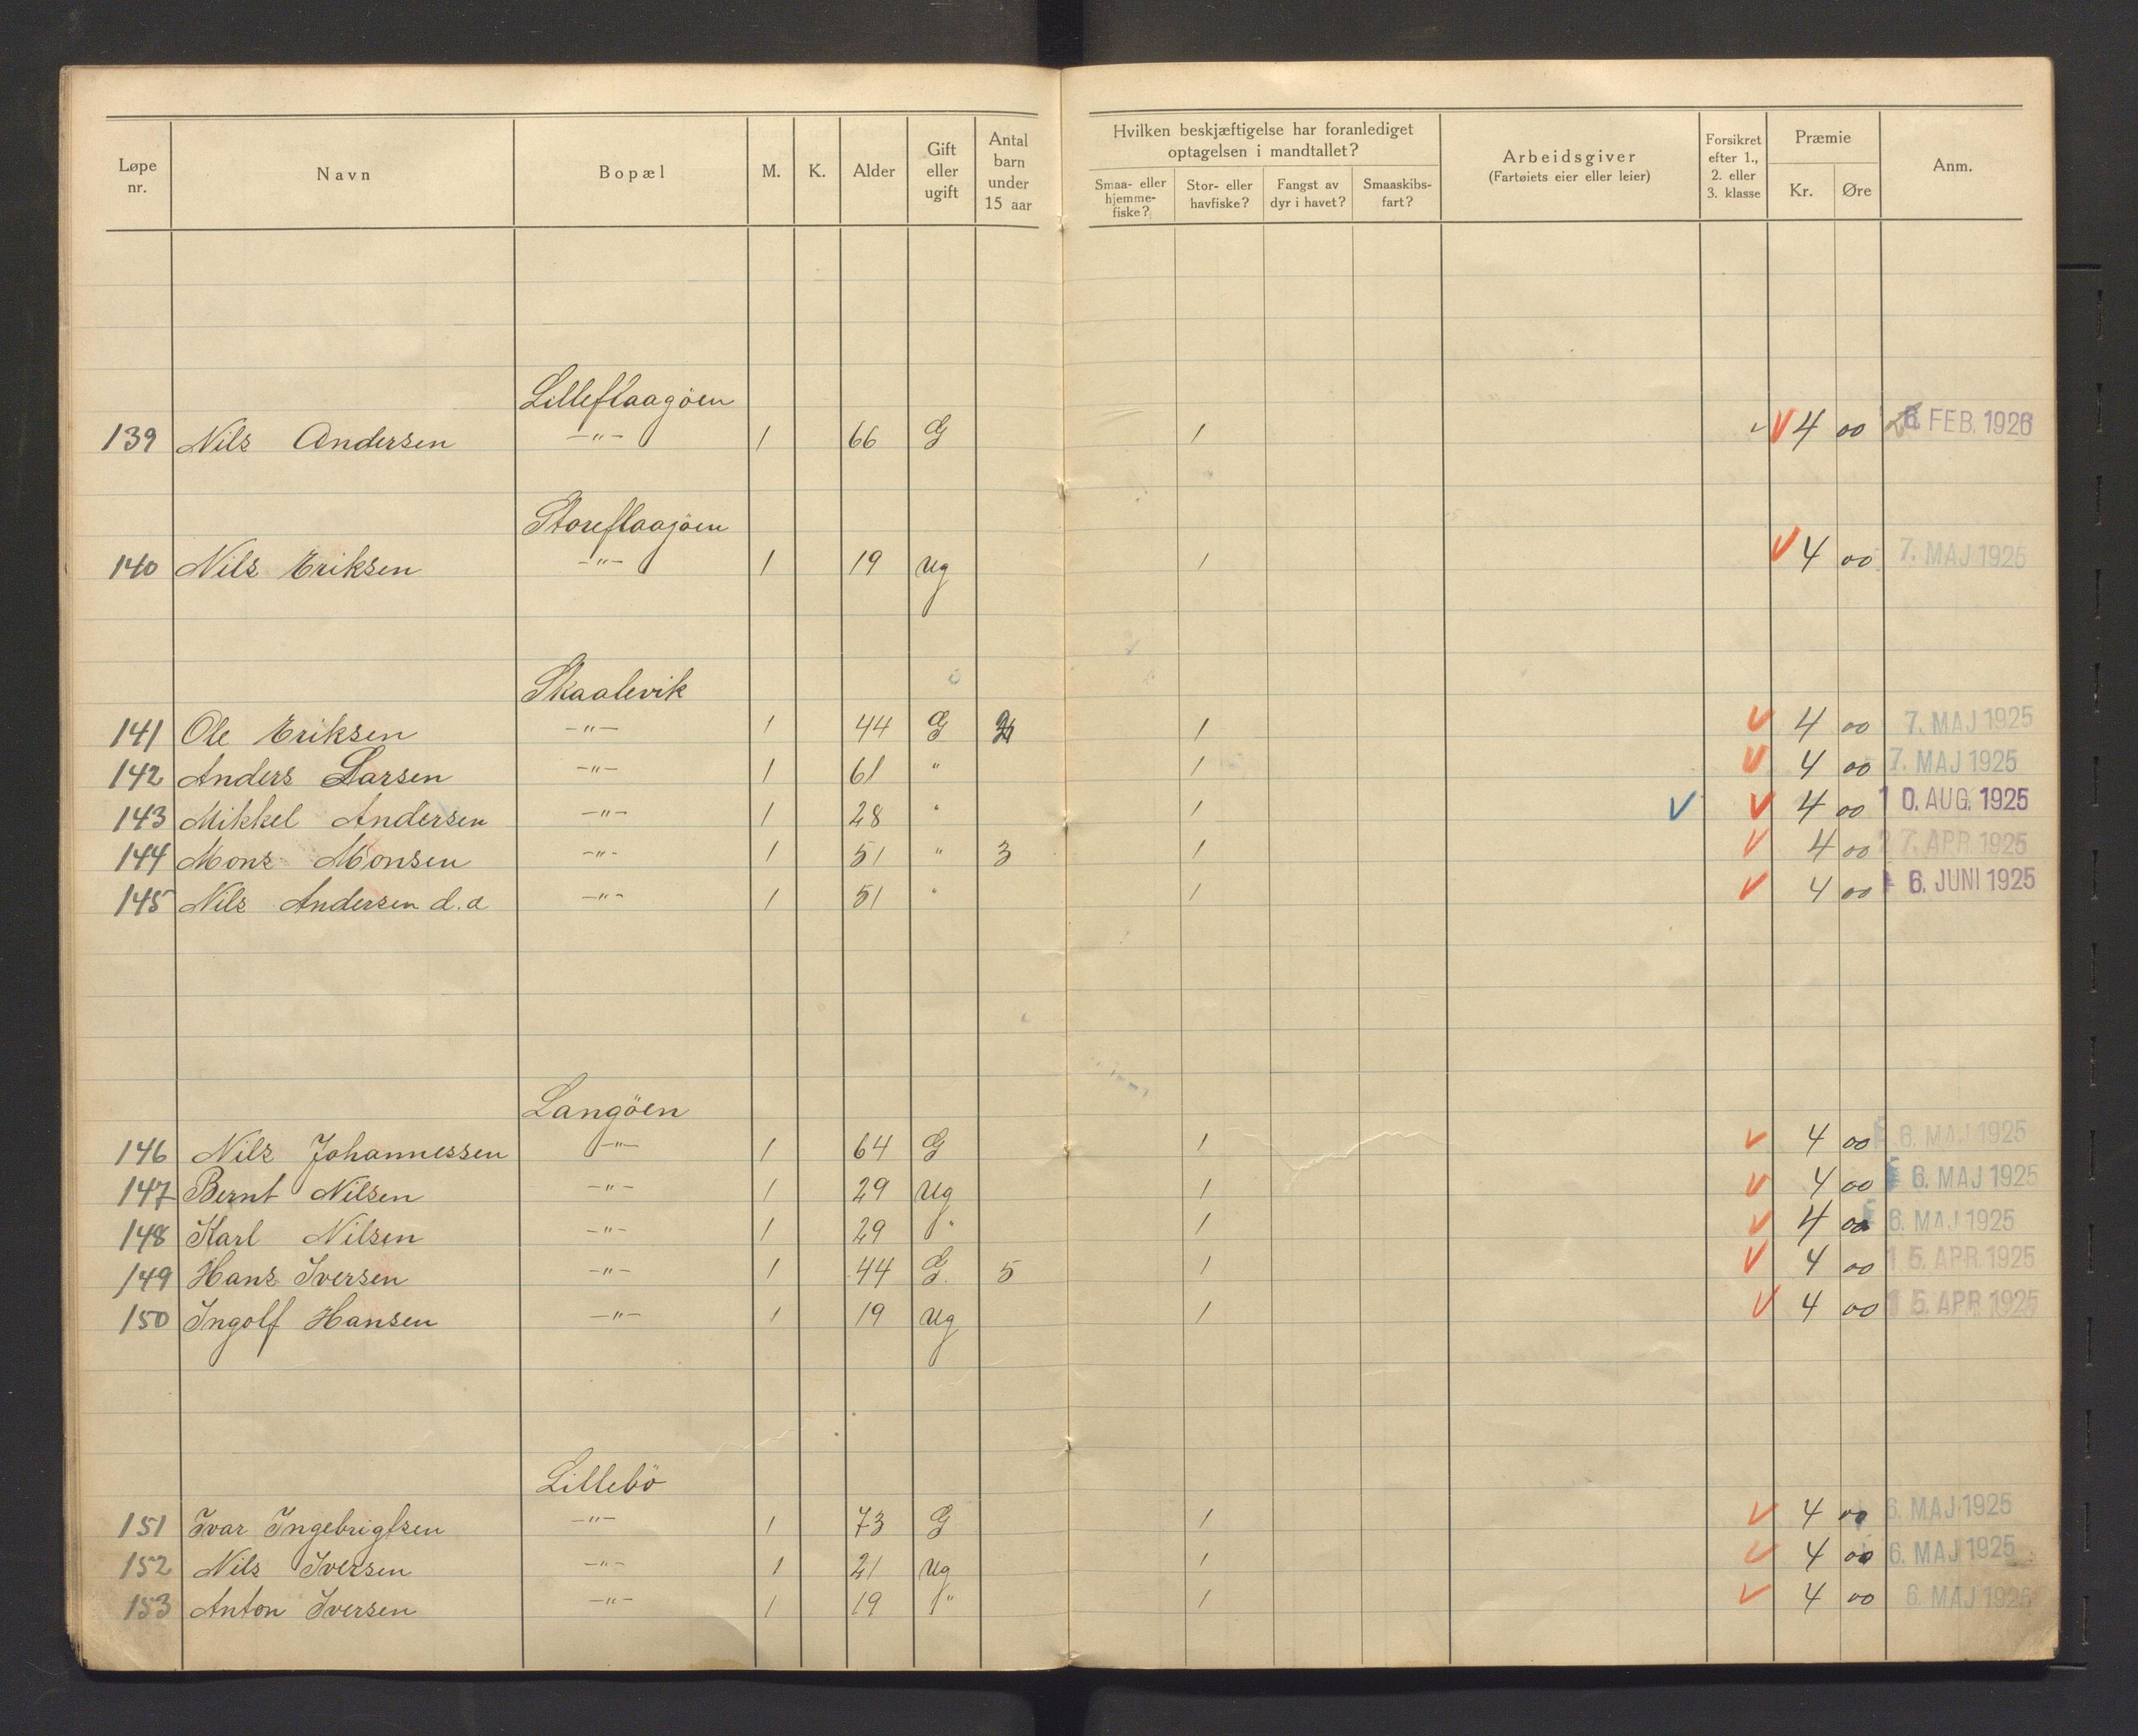 Løpe nr. Navn Bopæl M. K. Alder Gift eller ugift Antal barn under 15 aar Hvilken beskjæftigelse har foranlediget optagelsen i mandtallet? Smaa- eller hjemme-fiske? Stor- eller havfiske? Fangst av dyr i havet? Smaaskibs-fart? Arbeidsgiver (Fartøiets eier eller leier) Forsikret efter 1., 2. eller 3. klasse Præmie Kr. Øre Anm.
Lilleflaagöen
139 Nils Andersen —"— 1 66 G 1 4 00 FEB. 1926
Storeflaagöen
140 Nils Eriksen —"— 1 19 ug 1 4 00 7. MAJ 1925
Skaalevik
141 Ole Eriksen —"— 1 44 G 1 4 00 7. MAJ 1925
142 Anders Larsen —"— 1 61 " 1 4 00 7. MAJ 1925
143 Mikkel Andersen —"— 1 28 " 1 4 00 10. AUG. 1925
144 Mons Monsen —"— 1 51 " 3 1 4 00 27. APR. 1925
145 Nils Andersen d.a —"— 1 51 " 1 4 00 6. JUNI 1925
Langöen
146 Nils Johannessen —"— 1 64 G 1 4 00 6. MAJ 1925
147 Bernt Nilsen —"— 1 29 ug 1 4 00 6. MAJ 1925
148 Karl Nilsen —"— 1 29 " 1 4 00 6. MAJ 1925
149 Hans Iversen —"— 1 44 G. 5 1 4 00 15. APR. 1925
150 Ingolf Hansen —"— 1 19 ug 1 4 00 15. APR. 1925
Lillebö
151 Ivar Ingebrigtsen —"— 1 73 G 1 4 00 6. MAJ 1925
152 Nils Iversen —"— 1 21 ug 1 4 00 6. MAJ 1925
153 Anton Iversen —"— 1 19 " 1 4 00 6. MAJ 1925